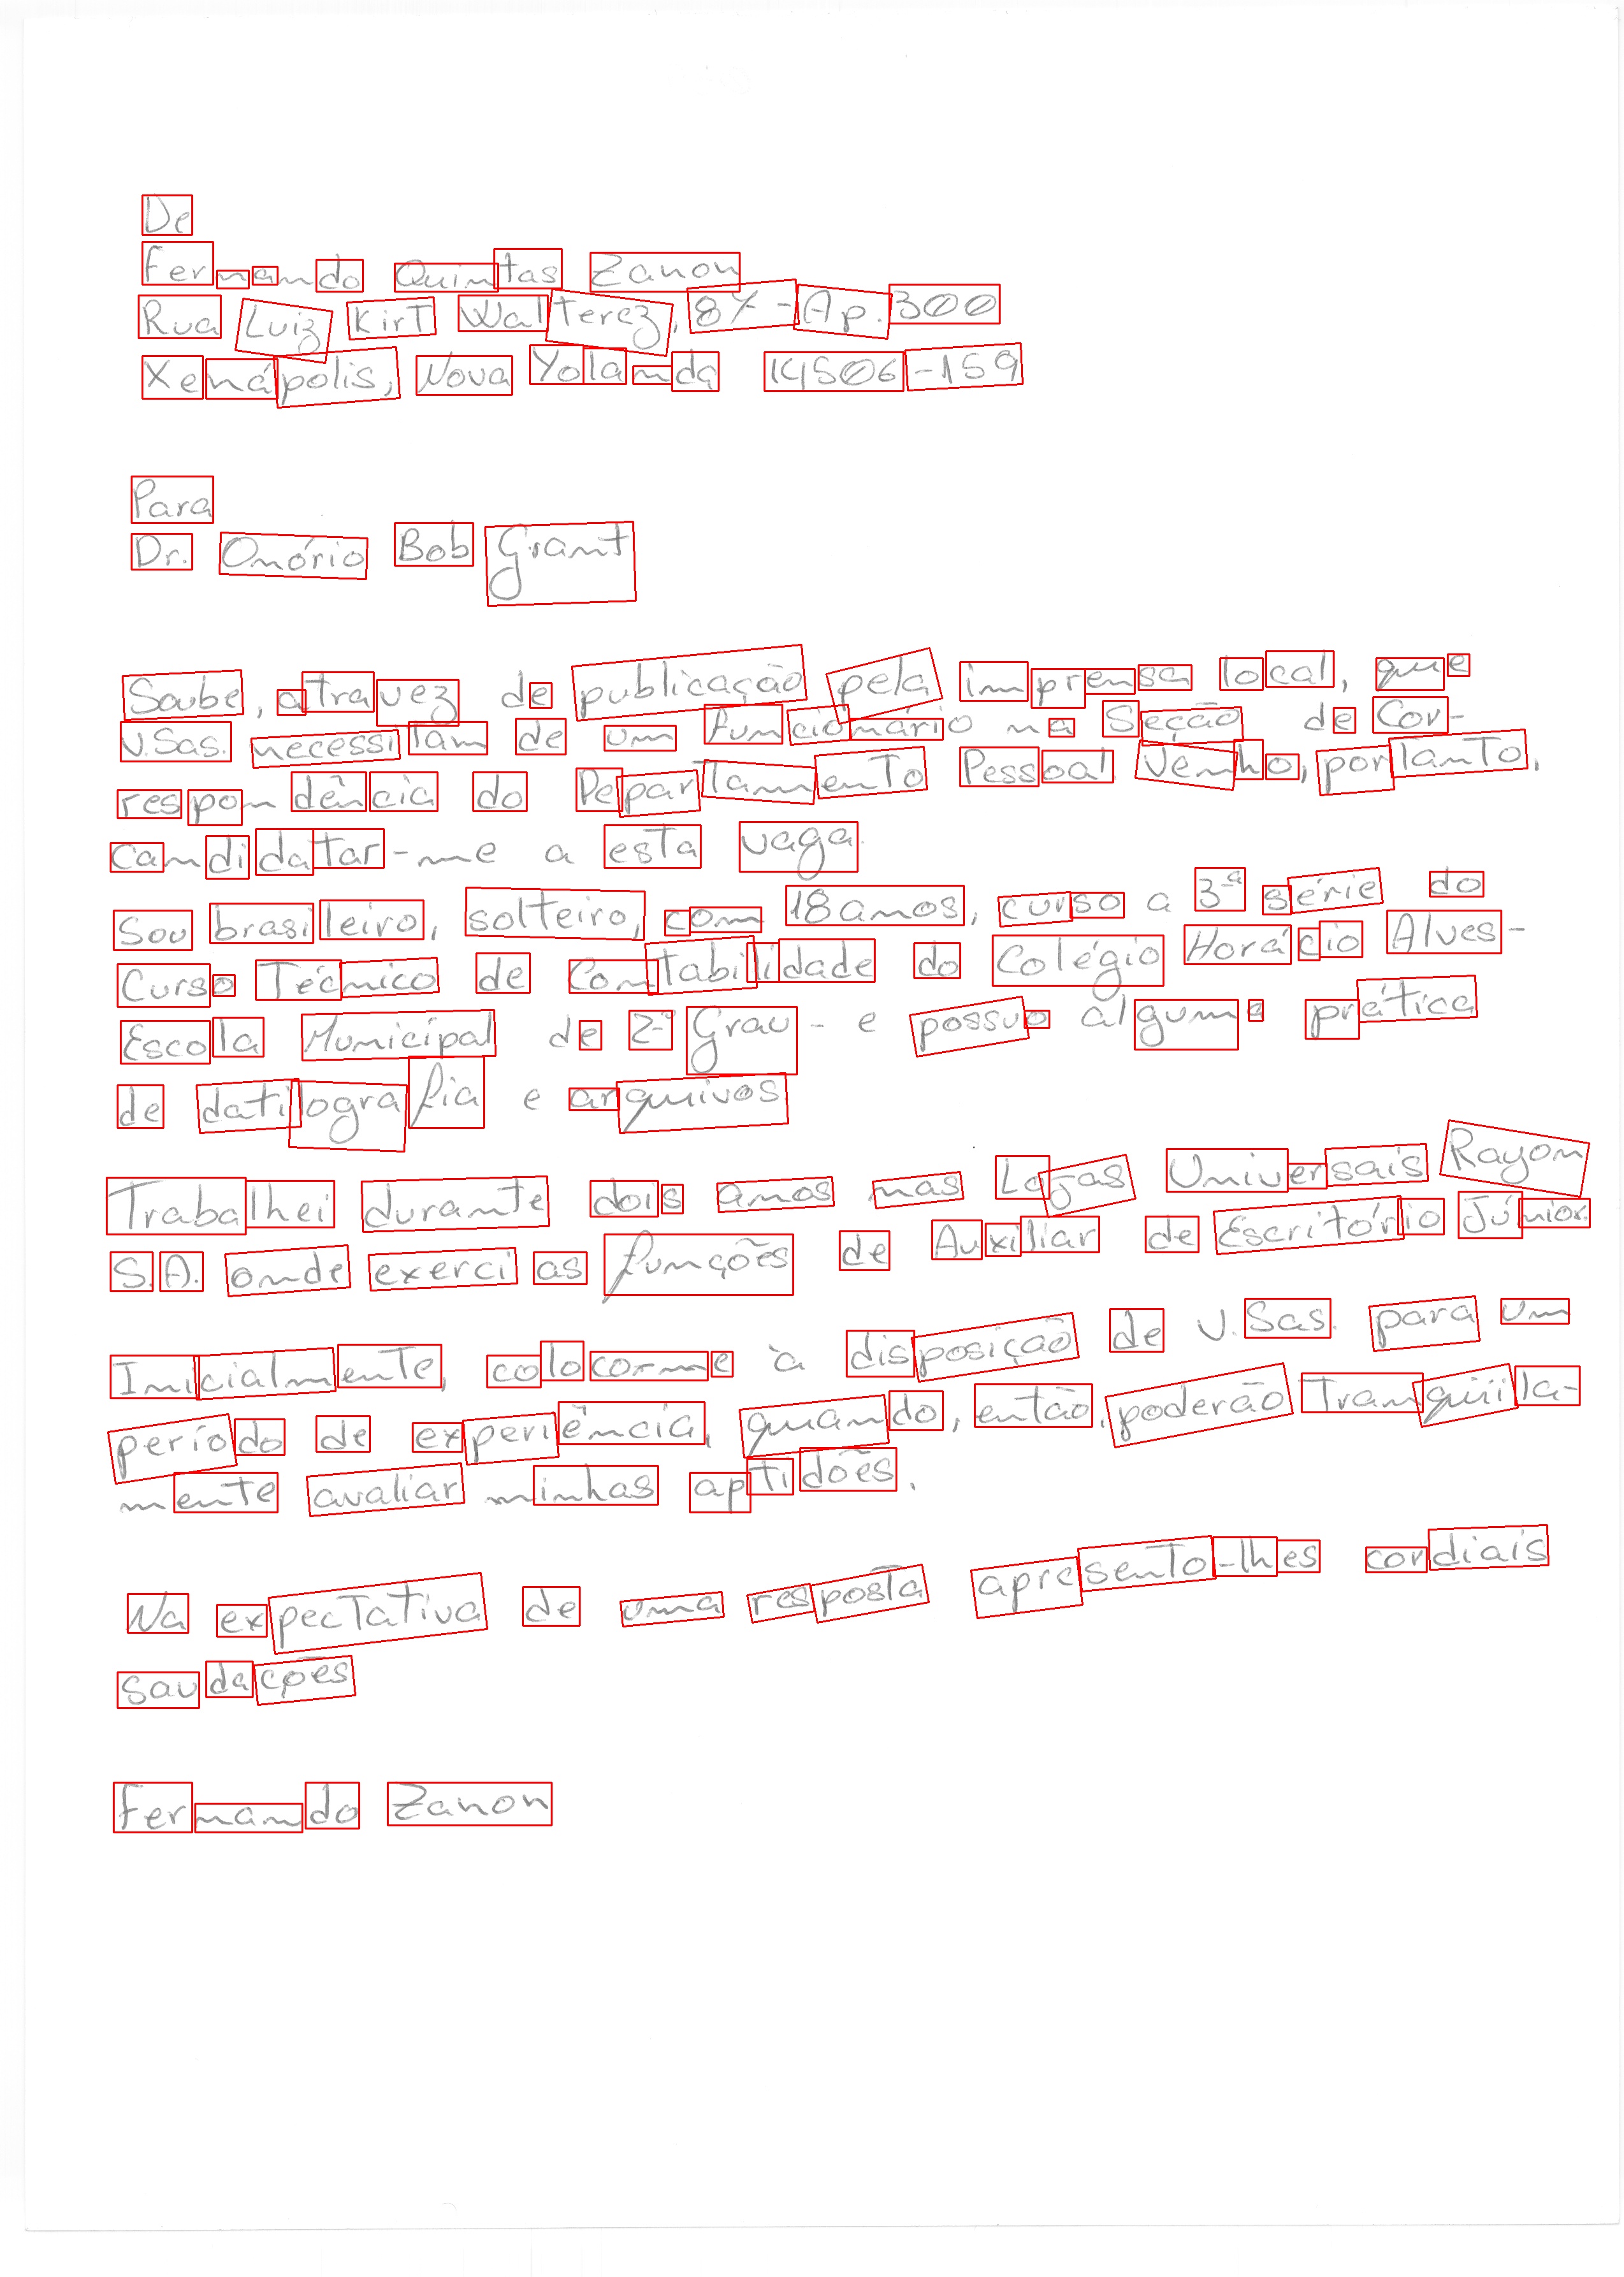 De
Fernando Quintas Zanon
Rua Luiz Kirt Walterez, 87 - Ap. 300
Xenápolis, Nova Yolanda 14506-159
Para
Dr. Onório Bob Grant
Soube, atravez de publicação pela imprensa local, que
V.Sas. necessitam de um funcionário na Seção de Cor-
respondência do Departamento Pessoal. Venho, portanto,
candidatar-me a esta vaga.
Sou brasileiro, solteiro, com 18 anos, curso a 3ª série do
Curso Técnico de Contabilidade do Colégio Horácio Alves -
Escola Municipal de 2º Grau - e possuo alguma prática
de datilografia e arquivos
Trabalhei durante dois anos nas Lojas Universais Rayon
S.A. onde exerci as funções de Auxiliar de Escritório Júnior.
Inicialmente, coloco-me à disposição de V.Sas. para um
período de experiência, quando, então, poderão tranqüila-
mente avaliar minhas aptidões.
Na expectativa de uma resposta apresento-lhes cordiais
saudações
Fernando Zanon